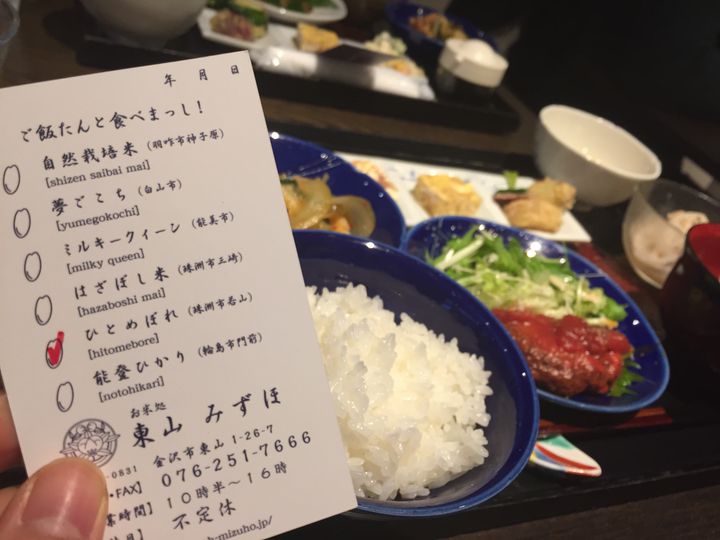 年 月 日
ご飯たんと食べまっし!
自然栽培米 (羽咋市神子原)
[shizen saibai mai]
夢ごこち (白山市)
[yumegokochi]
ミルキークィーン (能美市)
[milky queen]
はざぼし米 (珠洲市三崎)
[hazaboshi mai]
ひとめぼれ (珠洲市若山)
[hitomebore]
能登ひかり (輪島市門前)
[notohikari]
お米処
東山 みずほ
-0831 金沢市東山 1-26-7
・FAX】 076-251-7666
業時間】 10時半〜16時
】 不定休
h-mizuho.jp/